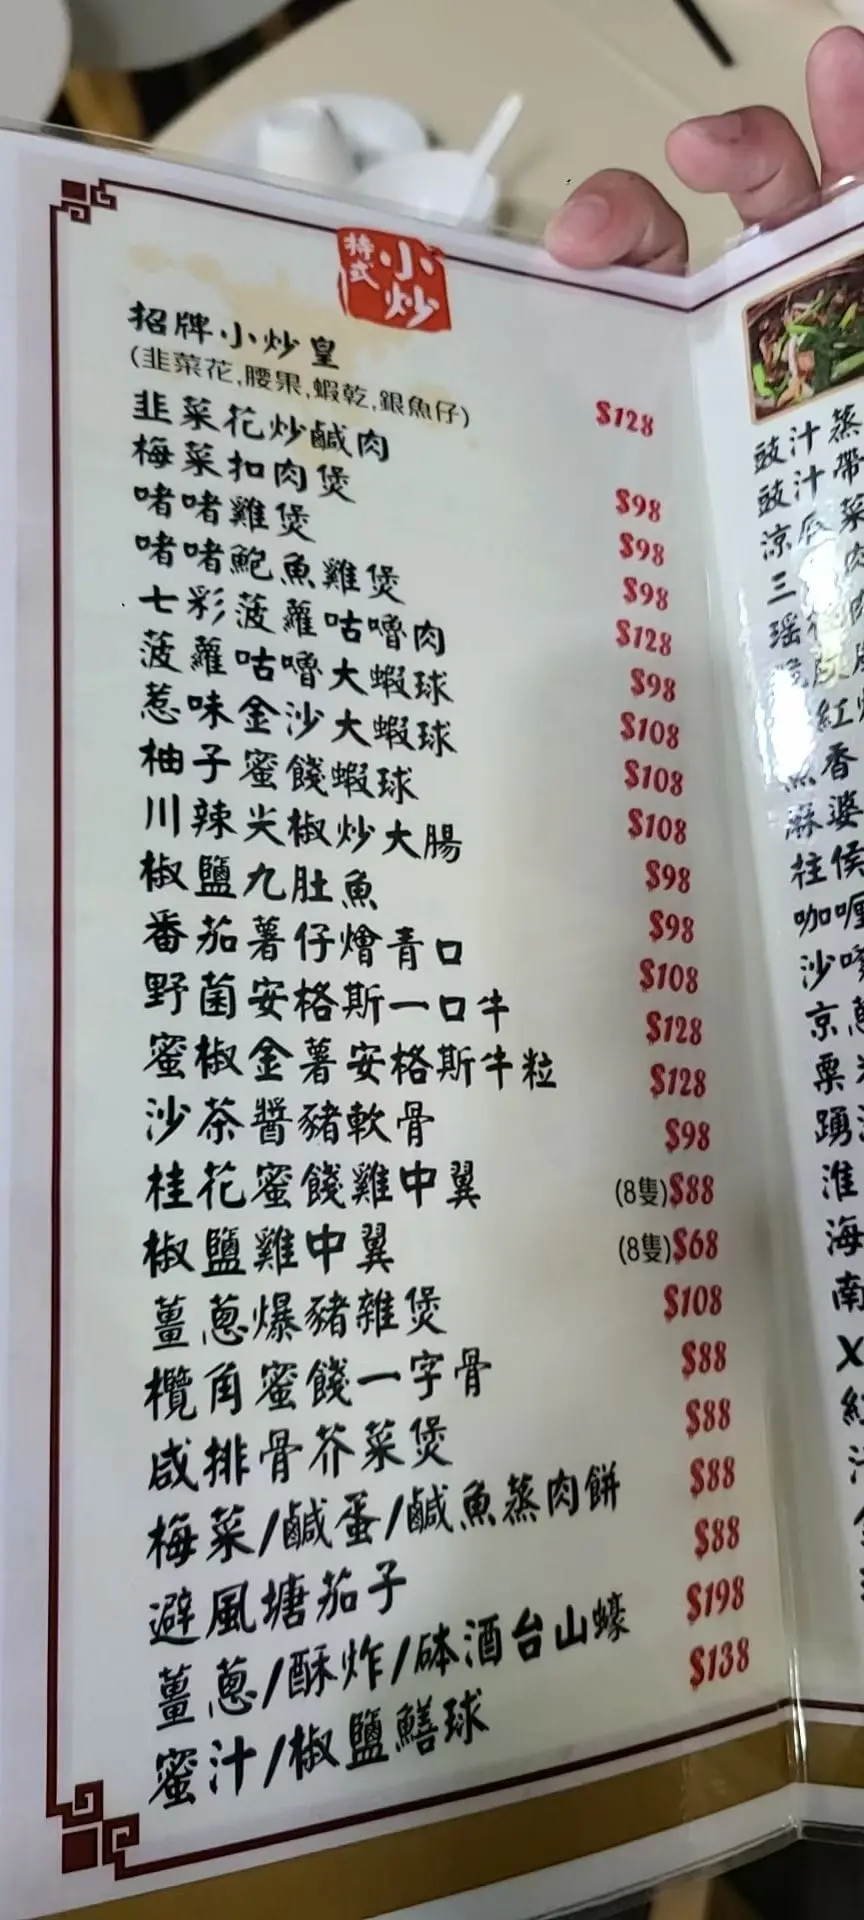 特式小炒
招牌小炒皇 $128
(韭菜花,腰果,蝦乾,銀魚仔)
韭菜花炒鹹肉 $98
梅菜扣肉煲 $98
啫啫雞煲 $98
啫啫鮑魚雞煲 $128
七彩菠蘿咕嚕肉 $98
菠蘿咕嚕大蝦球 $108
惹味金沙大蝦球 $108
柚子蜜餞蝦球 $108
川辣尖椒炒大腸 $98
椒鹽九肚魚 $98
番茄薯仔燴青口 $108
野菌安格斯一口牛 $128
蜜椒金薯安格斯牛粒 $128
沙茶醬豬軟骨 $98
桂花蜜餞雞中翼 (8隻)$88
椒鹽雞中翼 (8隻)$68
薑蔥爆豬雜煲 $108
欖角蜜餞一字骨 $88
咸排骨芥菜煲 $88
梅菜/鹹蛋/鹹魚蒸肉餅 $88
避風塘茄子 $88
薑蔥/酥炸/砵酒台山蠔 $198
蜜汁/椒鹽鱔球 $138
豉汁蒸
豉汁帶
三
魚香
麻婆
柱侯
咖喱
京
粟
淮
海
南
X